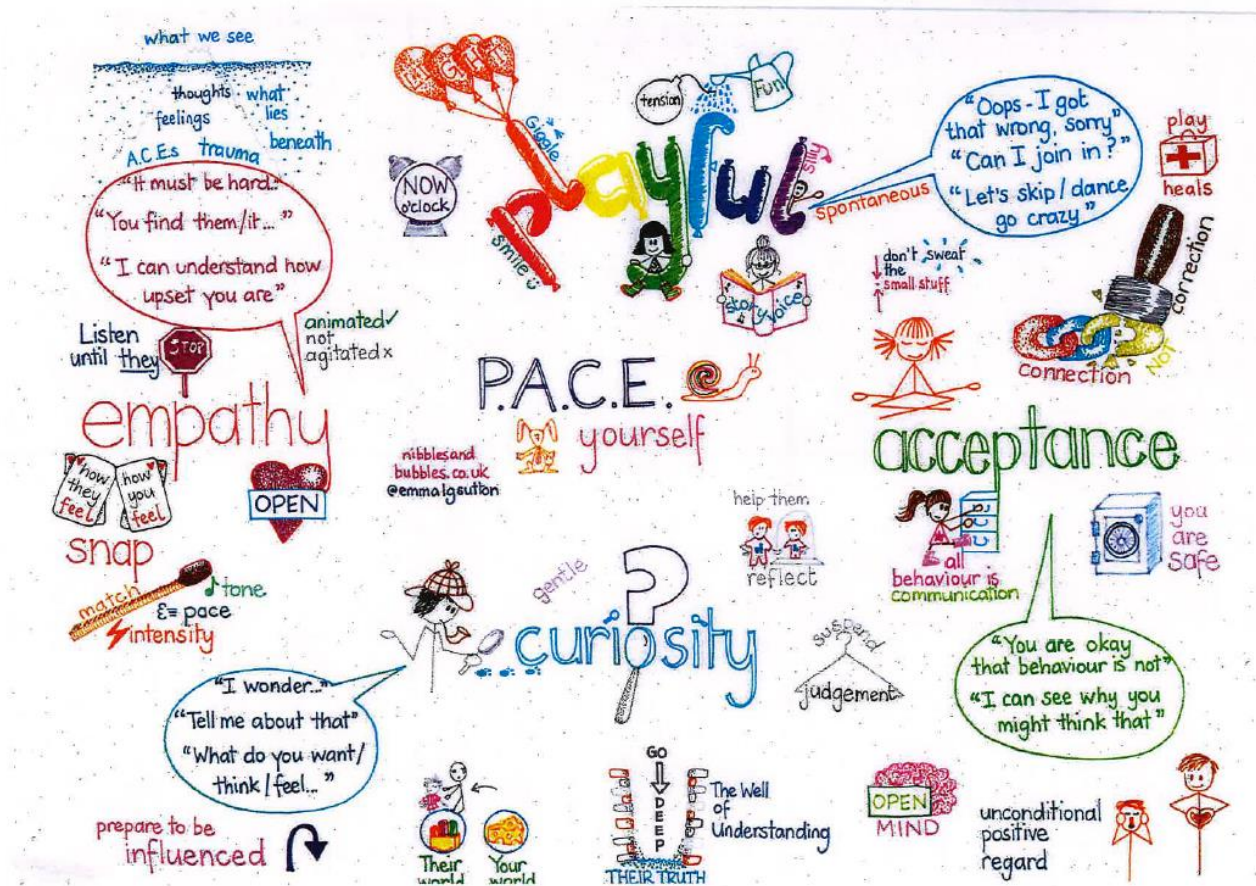 what we see
thoughts
feelings
what
lies
beneath
A.C.Es trauma
"It must be hard."
"You find them/it..."
"I can understand how
upset you are"
Listen
until they
STOP
animated✓
not
agitated x
empathy
how
they
feel
how
you
feel
OPEN
snap
match
tone
pace
intensity
LIGHT
NOW
o'clock
Giggle
tension
Fun
playful
silly
smile
spontaneous
story voice
"Oops - I got
that wrong, sorry"
"Can I join in?"
"Let's skip / dance
go crazy"
play
heals
don't sweat
the
small stuff
correction
NOT
connection
P.A.C.E.
yourself
nibblesand
bubbles.co.uk
@emmalgsutton
acceptance
all
behaviour is
communication
you
are
safe
"You are okay
that behaviour is not"
"I can see why you
might think that"
help them
reflect
gentle
?
curiosity
suspend
judgement
"I wonder..."
"Tell me about that"
"What do you want/
think / feel..."
prepare to be
influenced
Their
world
Your
world
GO
DEEP
The Well
of
Understanding
THEIR TRUTH
OPEN
MIND
unconditional
positive
regard